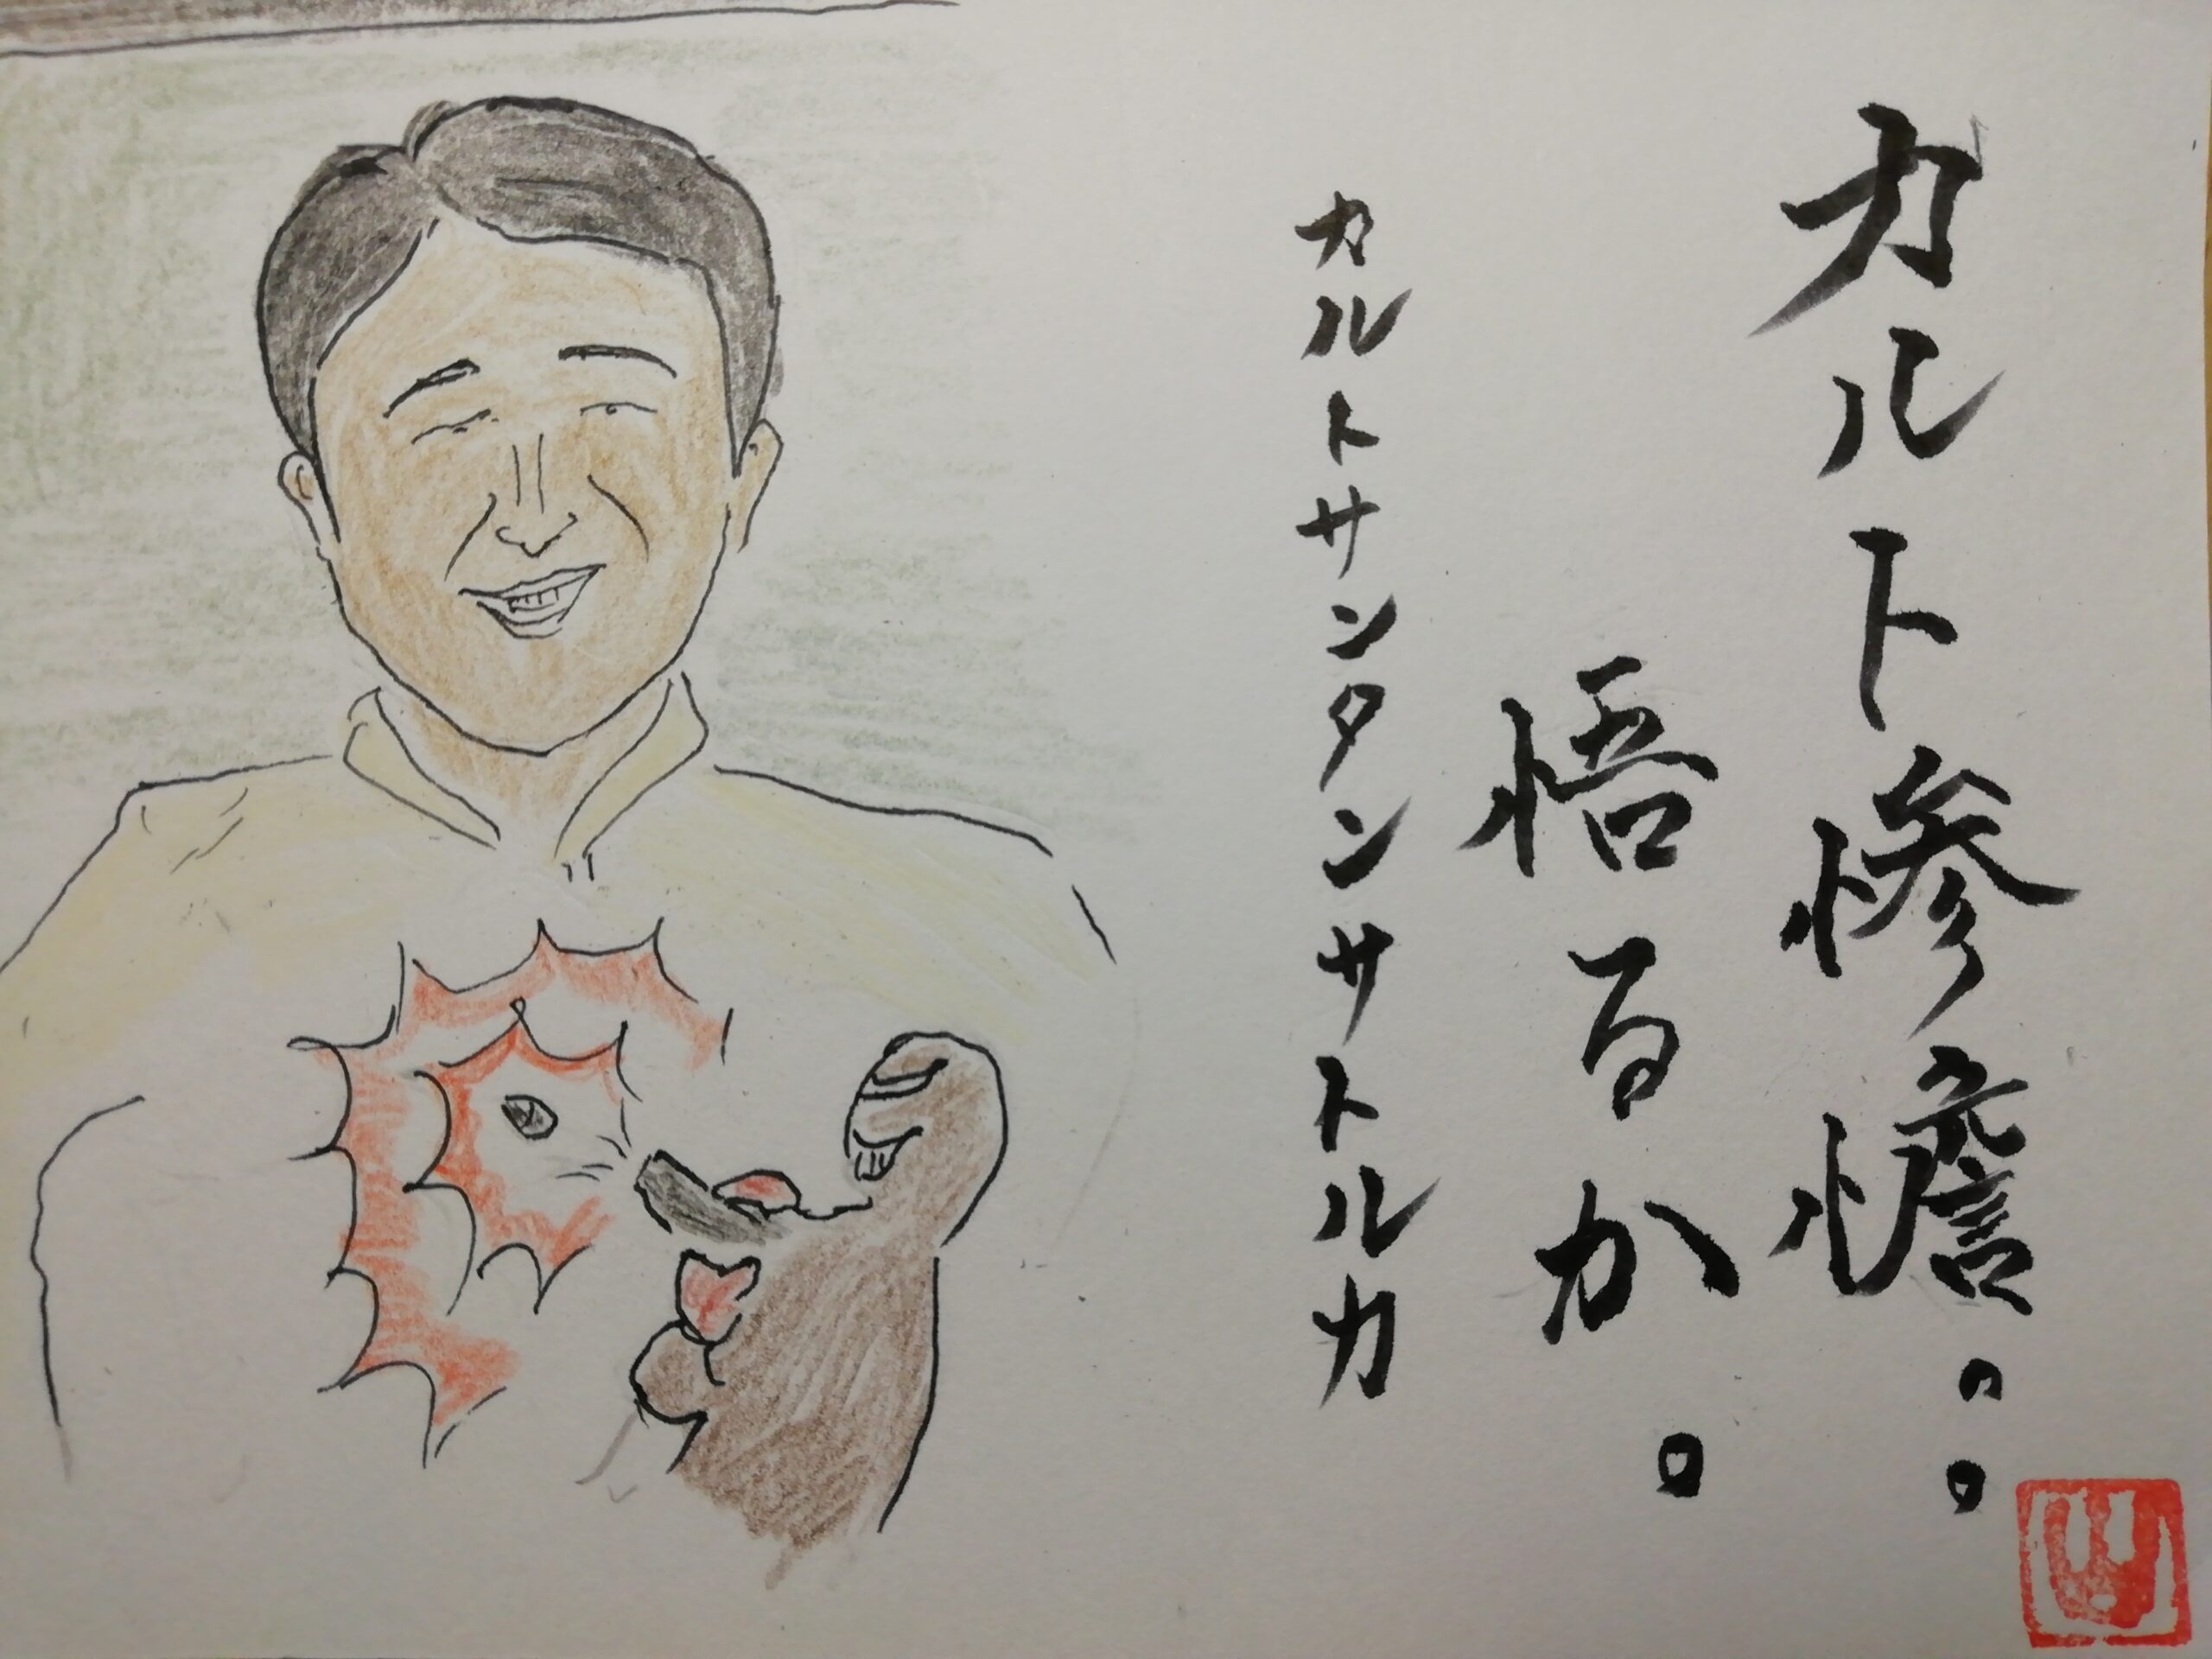 カルト惨憺。。
悟るか。
カルトサンタンサトルカ